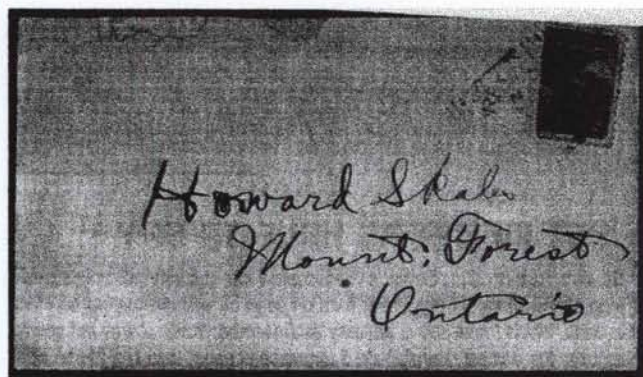 Howard
Mount. Forest
Ontario